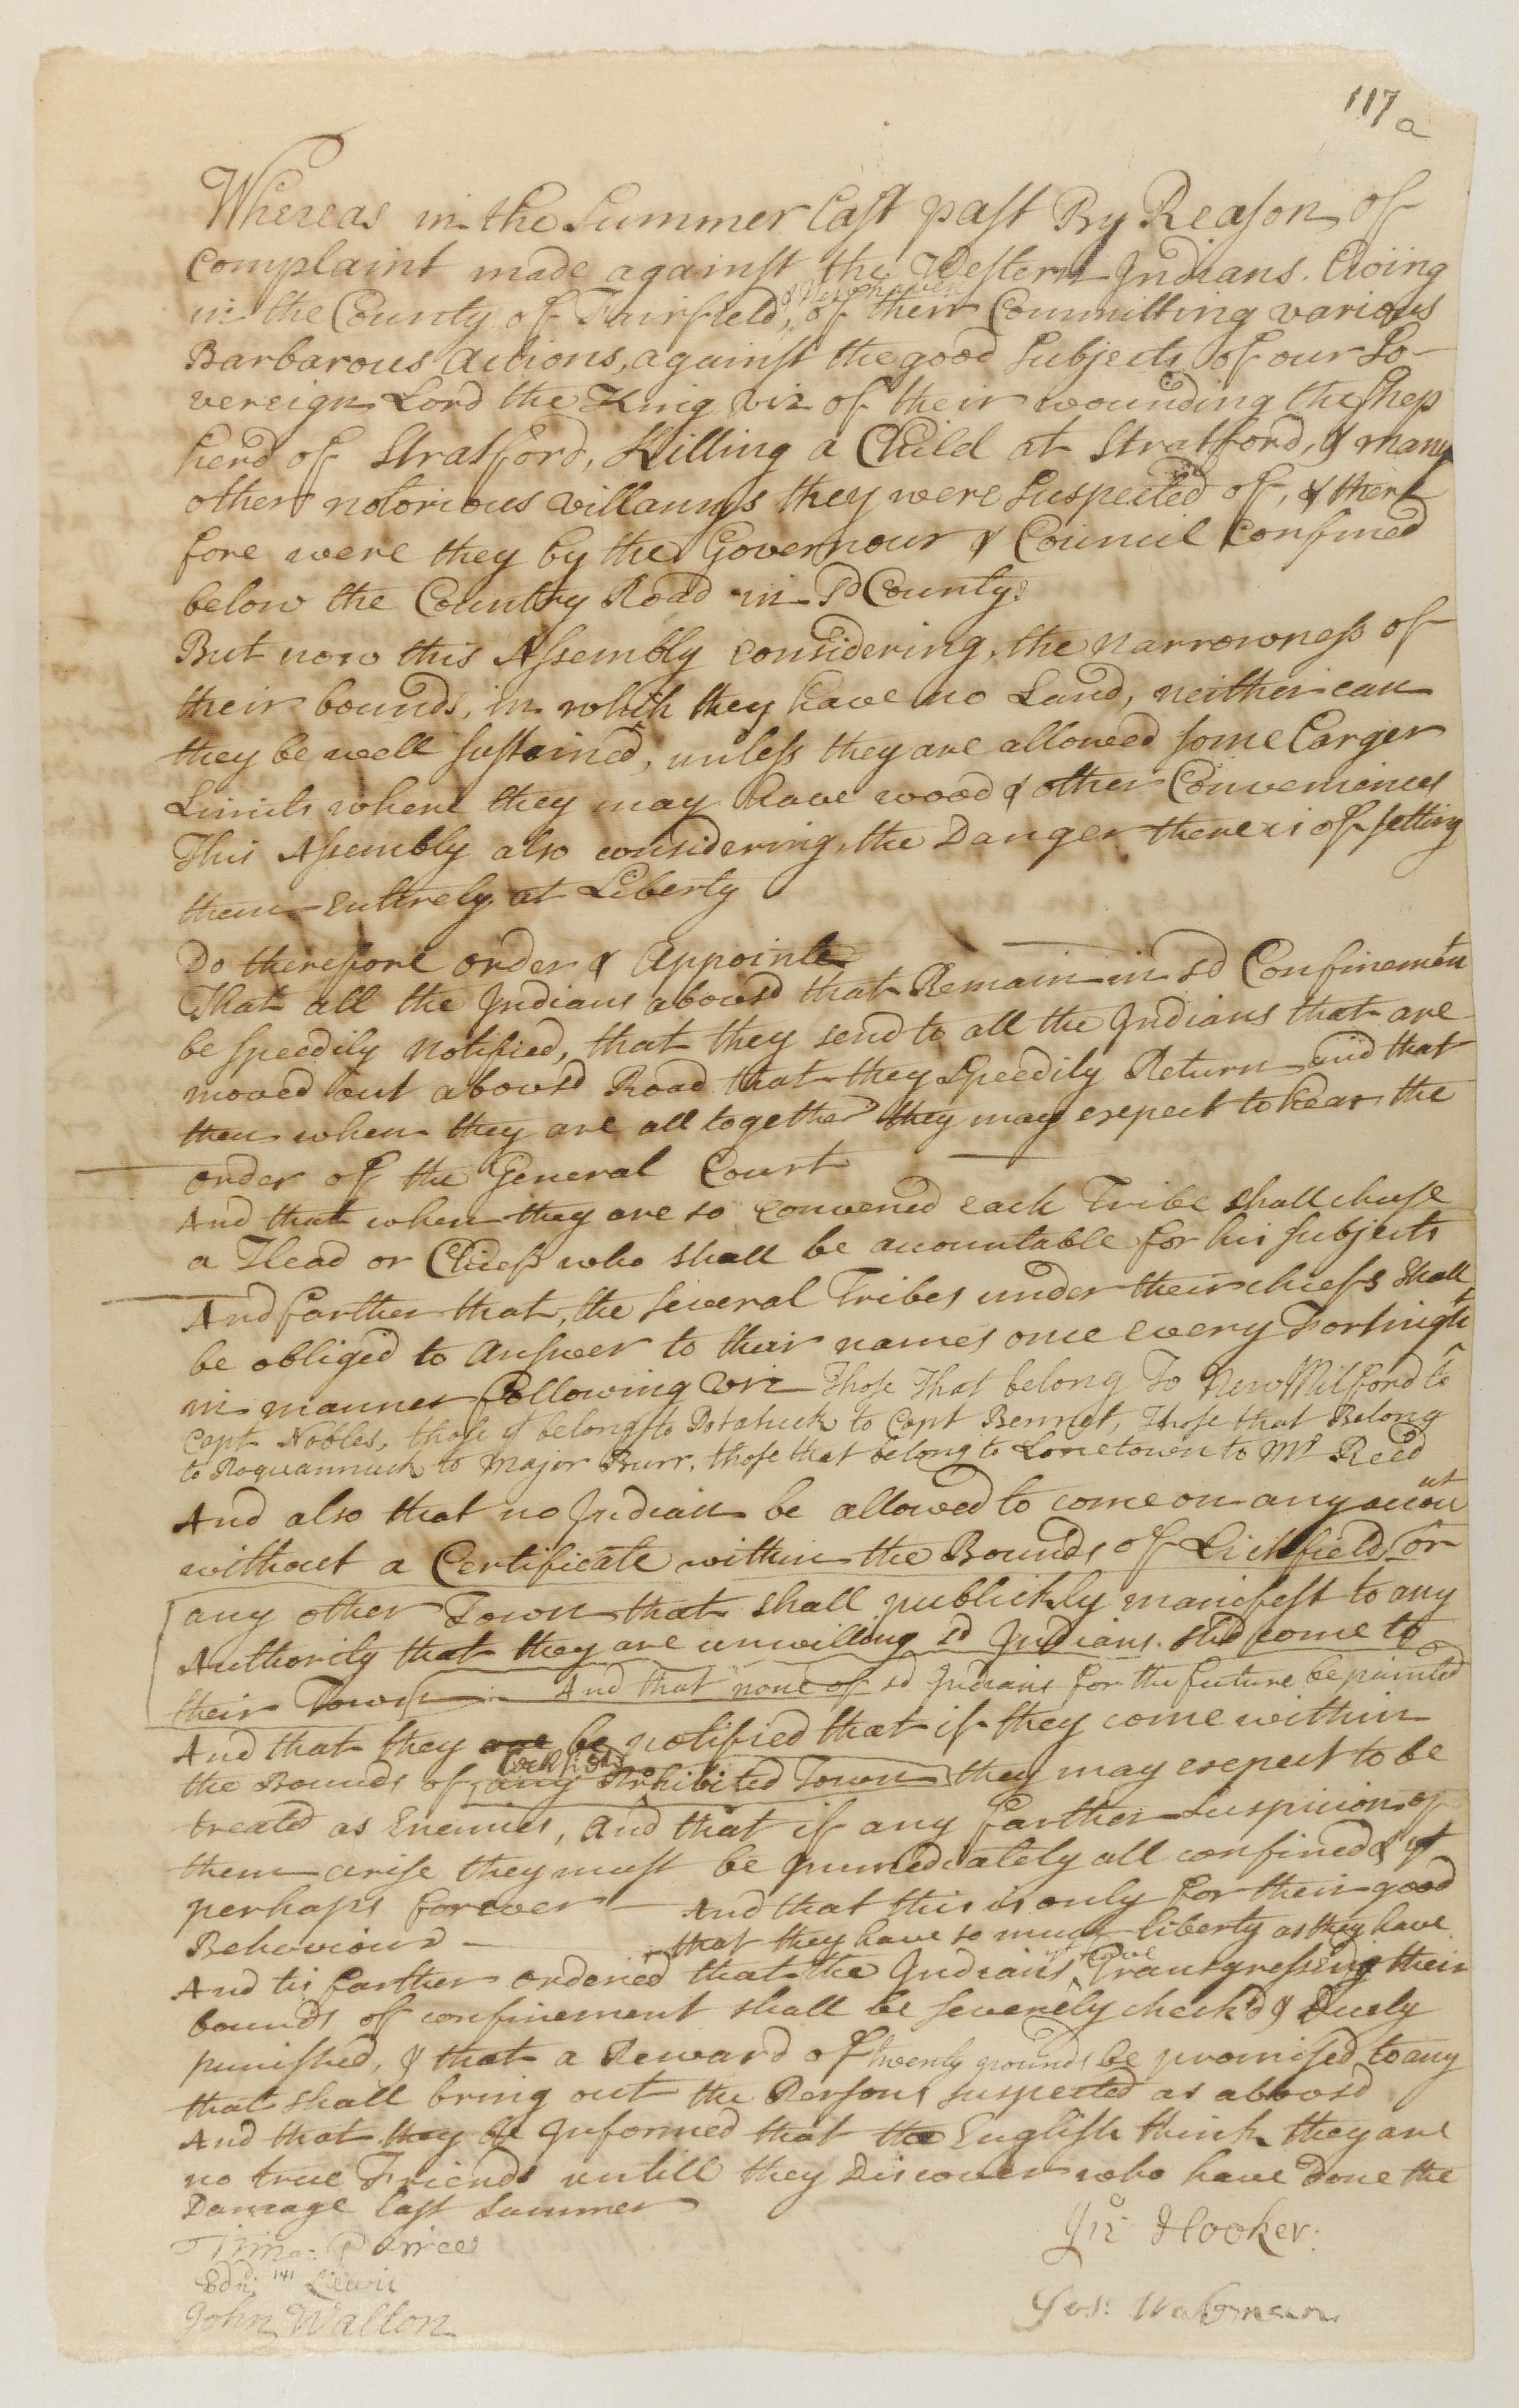 117 a
Whereas in the Summer last past By Reason of
Complaint made against the Western Indians. living
in the County of Fairfield, & Newhaven of their Committing various
Barbarous actions, against the good subjects of our So-
vereign Lord the King viz of their wounding the Shep
herd of Stratford, Killing a Child at Stratford, & many
other notorious villanys they were Suspected of, & there
fore were they by the Governour & Council Confined
below the Country Road in sd County:
But now this Assembly considering, the narrowness of
their bounds, in which they have no Land, neither can
they be well sustained, unless they are allowed some larger
Limits where they may have wood & other Conveniences
This Assembly also considering, the Danger there is of setting
them entirely at Liberty
Do therefore order & Appointe
That all the Indians abovsd that Remain in sd Confinement
be speedily notified, that they send to all the Indians that are
moved out abovsd Road that they speedily Return and that
then when they are all together they may expect to hear the
order of the General Court
And that when they are so convened each Tribe shall chuse
a Head or Chief who shall be accountable for his subjects
And farther that, the several Tribes under their chiefs shall
be obliged to answer to their names once every Fortnight
in manner following viz Those That belong To New Milford to
Capt Nobles, those yt belong to Potatuck to Capt Bennet, Those that Belong
to Poquannuck to Major Burr, those that belong to Lonetown to Mr Reed
And also that no Indian be allowed to come on any account
without a Certificate within the Bounds of Lichfield, or
any other Town that shall publickly manifest to any
Authority that they are unwilling sd Indians. shd come to
their Town And that none of sd Indians for the future be painted
And that they are be notified that if they come within
the Bounds of Lichfield any Prohibited Town they may expect to be
treated as Enemies, And that if any farther suspicion of
them arise they must be Immediately all confined & yt
perhaps forever - And that this is only for their good
Behaviour - that they have so much liberty as they have
And tis farther ordered that the Indians yt have Transgressing their
bounds of confinement shall be severely check'd & Duely
punished, & that a Reward of twenty pounds be promised to any
that shall bring out the Persons suspected as abovsd
And that they be Informed that the English think they are
no true Friends untill they Discover who have done the
Damage last Summer
Jno Hooker:
Timo: Peirce
Edmd Lewis
Jos: Wakeman
John Walton